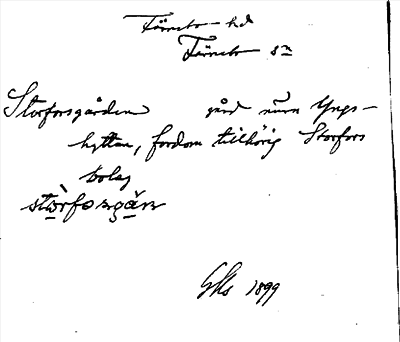 Färnebo hd
Färnebo sn
Storforsgården gård nära Yngs-
hyttan, fordom tillhörig Storfors
bolag
1899